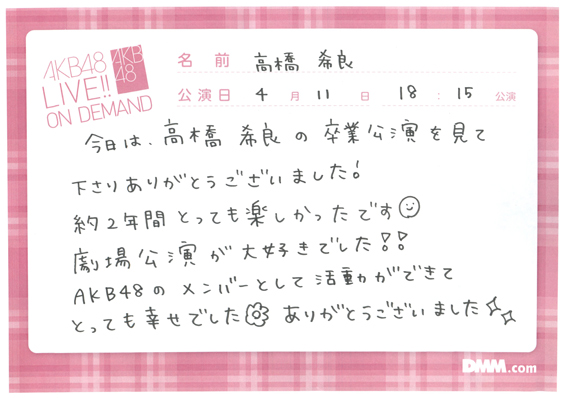 AKB48
LIVE!!
ON DEMAND
AKB
48
名前 高橋 希良
公演日 4月11日 18:15公演
今日は、高橋 希良の卒業公演を見て
下さりありがとうございました!
約2年間とっても楽しかったです
劇場公演が大好きでした!!
AKB48のメンバーとして活動ができて
とっても幸せでした ありがとうございました
DMM.com